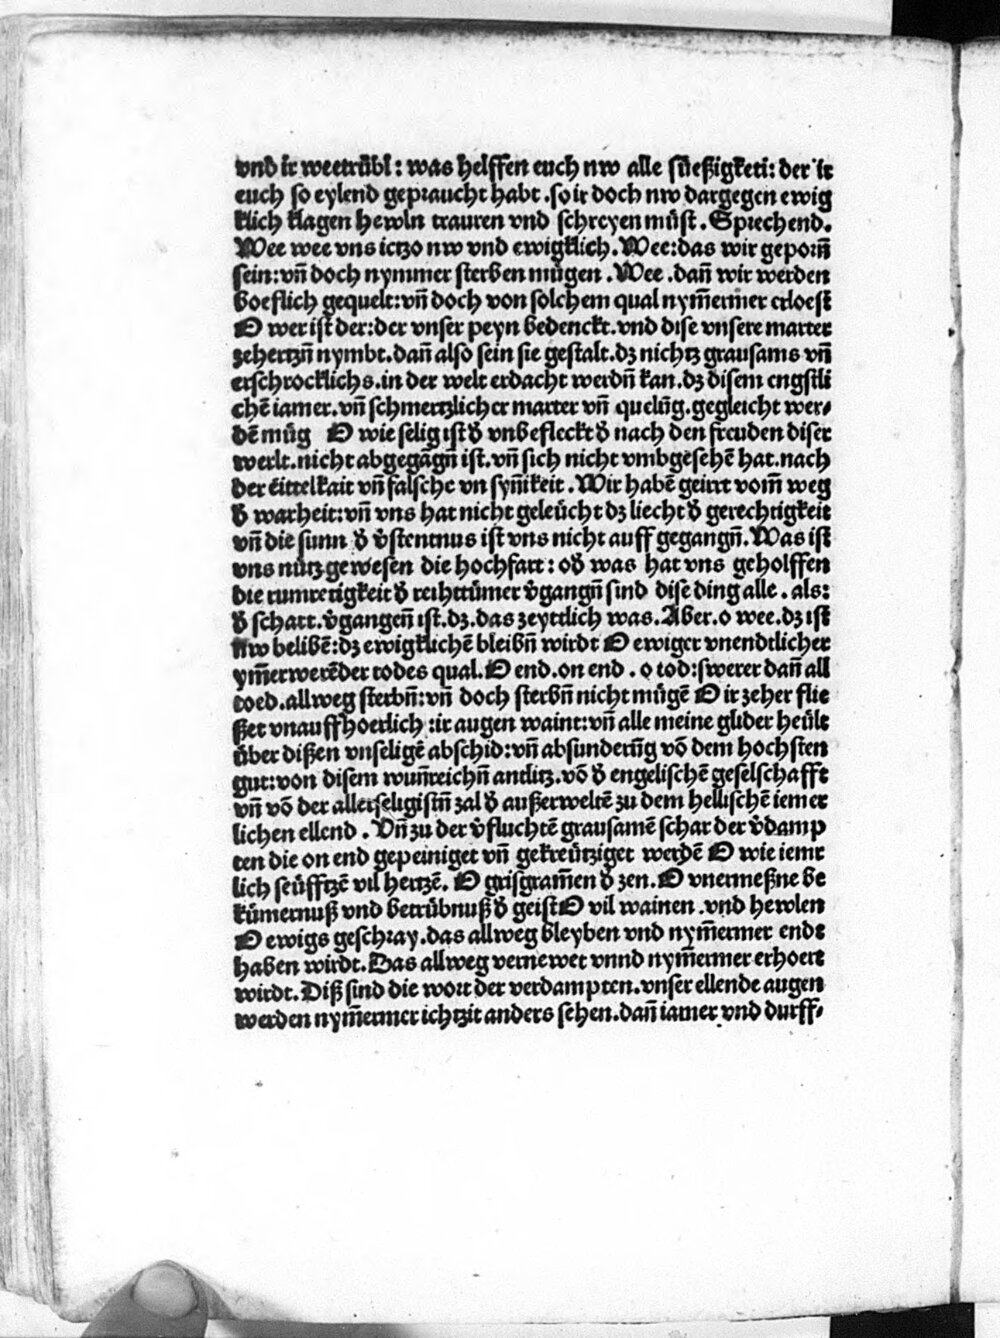 vnd ir weetrübl: was helffen euch nw alle süeßigketi: der ir
euch so eylend gepraucht habt .so ir doch nw dargegen ewig
klich klagen hewln trauren vnd schreyen müst. Sprechend.
Wee wee vns ietzo nw vnd ewigklich. Wee: das wir geporn̄
sein: vn̄ doch nymmer sterben mügen .Wee .dan̄ wir werden
boeslich gequelt: vn̄ doch von solchem qual nym̄ermer erloest
O wer ist der: der vnser peyn bedenckt. vnd dise vnsere marter
zehertzn̄ nymbt. dan̄ also sein sie gestalt. dz nichtz grausams vn̄
erschrocklichs. in der welt erdacht werdn̄ kan. dz disem engstli
chē iamer. vn̄ schmertzlicher marter vn̄ quelūg. gegleicht wer⸗
dē müg O wie selig ist d̄ vnbefleckt d̄ nach den freuden diser
werlt. nicht abgegāgn̄ ist. vn̄ sich nicht vmbgesehē hat. nach
der eittelkait vn̄ falsche vn syn̄ikeit. Wir habē geirrt vom̄ weg
d̄ warheit: vn̄ vns hat nicht geleücht dz liecht d̄ gerechtigkeit
vn̄ die sunn d̄ v̄stentnus ist vns nicht auff gegangn̄. Was ist
vns nutz gewesen die hochfart: od̄ was hat vns geholffen
die rumretigkeit d̄ reihttümer v̄gangn̄ sind dise ding alle . als:
d̄ schatt. v̄gangen̄ ist. dz. das zeyttlich was. Aber. o wee. dz ist
nw belibē: dz ewigklichē bleibn̄ wirdt O ewiger vnendtlicher
ym̄erwerēder todes qual. O end. on end . o tod: swerer dan̄ all
toed. allweg sterbn̄: vn̄ doch sterbn̄ nicht mügē O ir zeher flie
ßet vnauffhoerlich :ir augen waint: vn̄ alle meine glider heült
über dißen vnseligē abschid: vn̄ absunderūg vō dem hochsten
gut: von disem wun̄reichn̄ antlitz. vō d̄ engelischē geselschafft
vn̄ vō der allerseligistn̄ zal d̄ außerweltē zu dem hellischē iemer
lichen ellend . Vn̄ zu der v̄fluchtē grausamē schar der v̄damp
ten die on end gepeiniget vn̄ gekreütziget werdē O wie iemr
lich seüfftzē vil hertzē. O grisgram̄en d̄ zen. O vnermeßne be
kümernuß vnd betrübnuß d̄ geist O vil wainen .vnd hewlen
O ewigs geschray. das allweg bleyben vnd nym̄ermer ende
haben wirdt. Das allweg vernewet vnnd nym̄ermer erhoert
wirdt. Diß sind die wort der verdampten. vnser ellende augen
werden nym̄ermer ichtzit anders sehen. dan̄ iamer vnd durff⸗